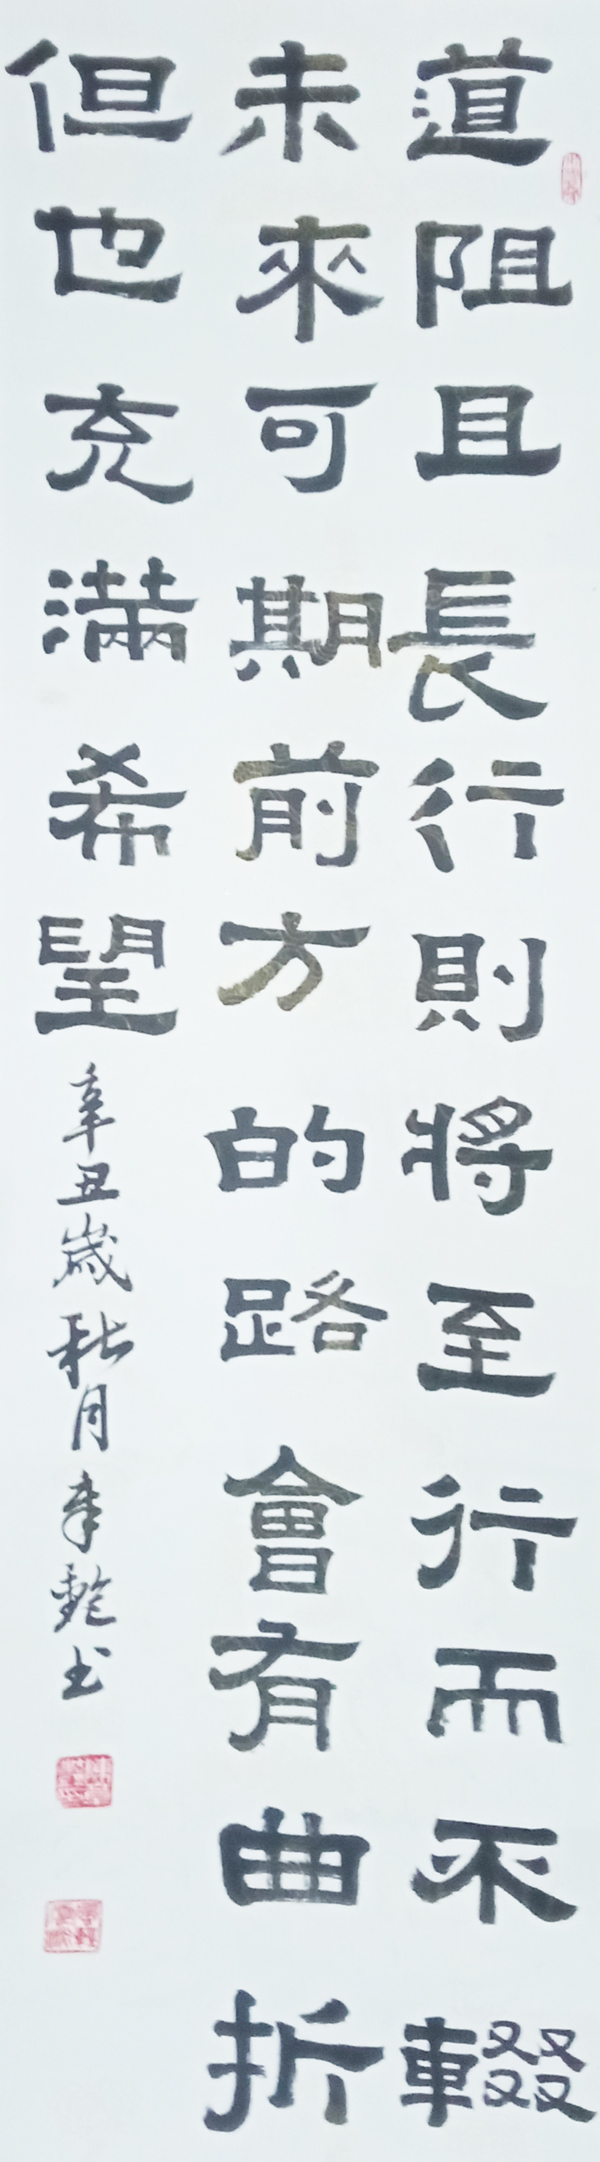 道阻且長行則將至行而不輟
未來可期前方的路會有曲折
但也充滿希望
辛丑歲秋月 書